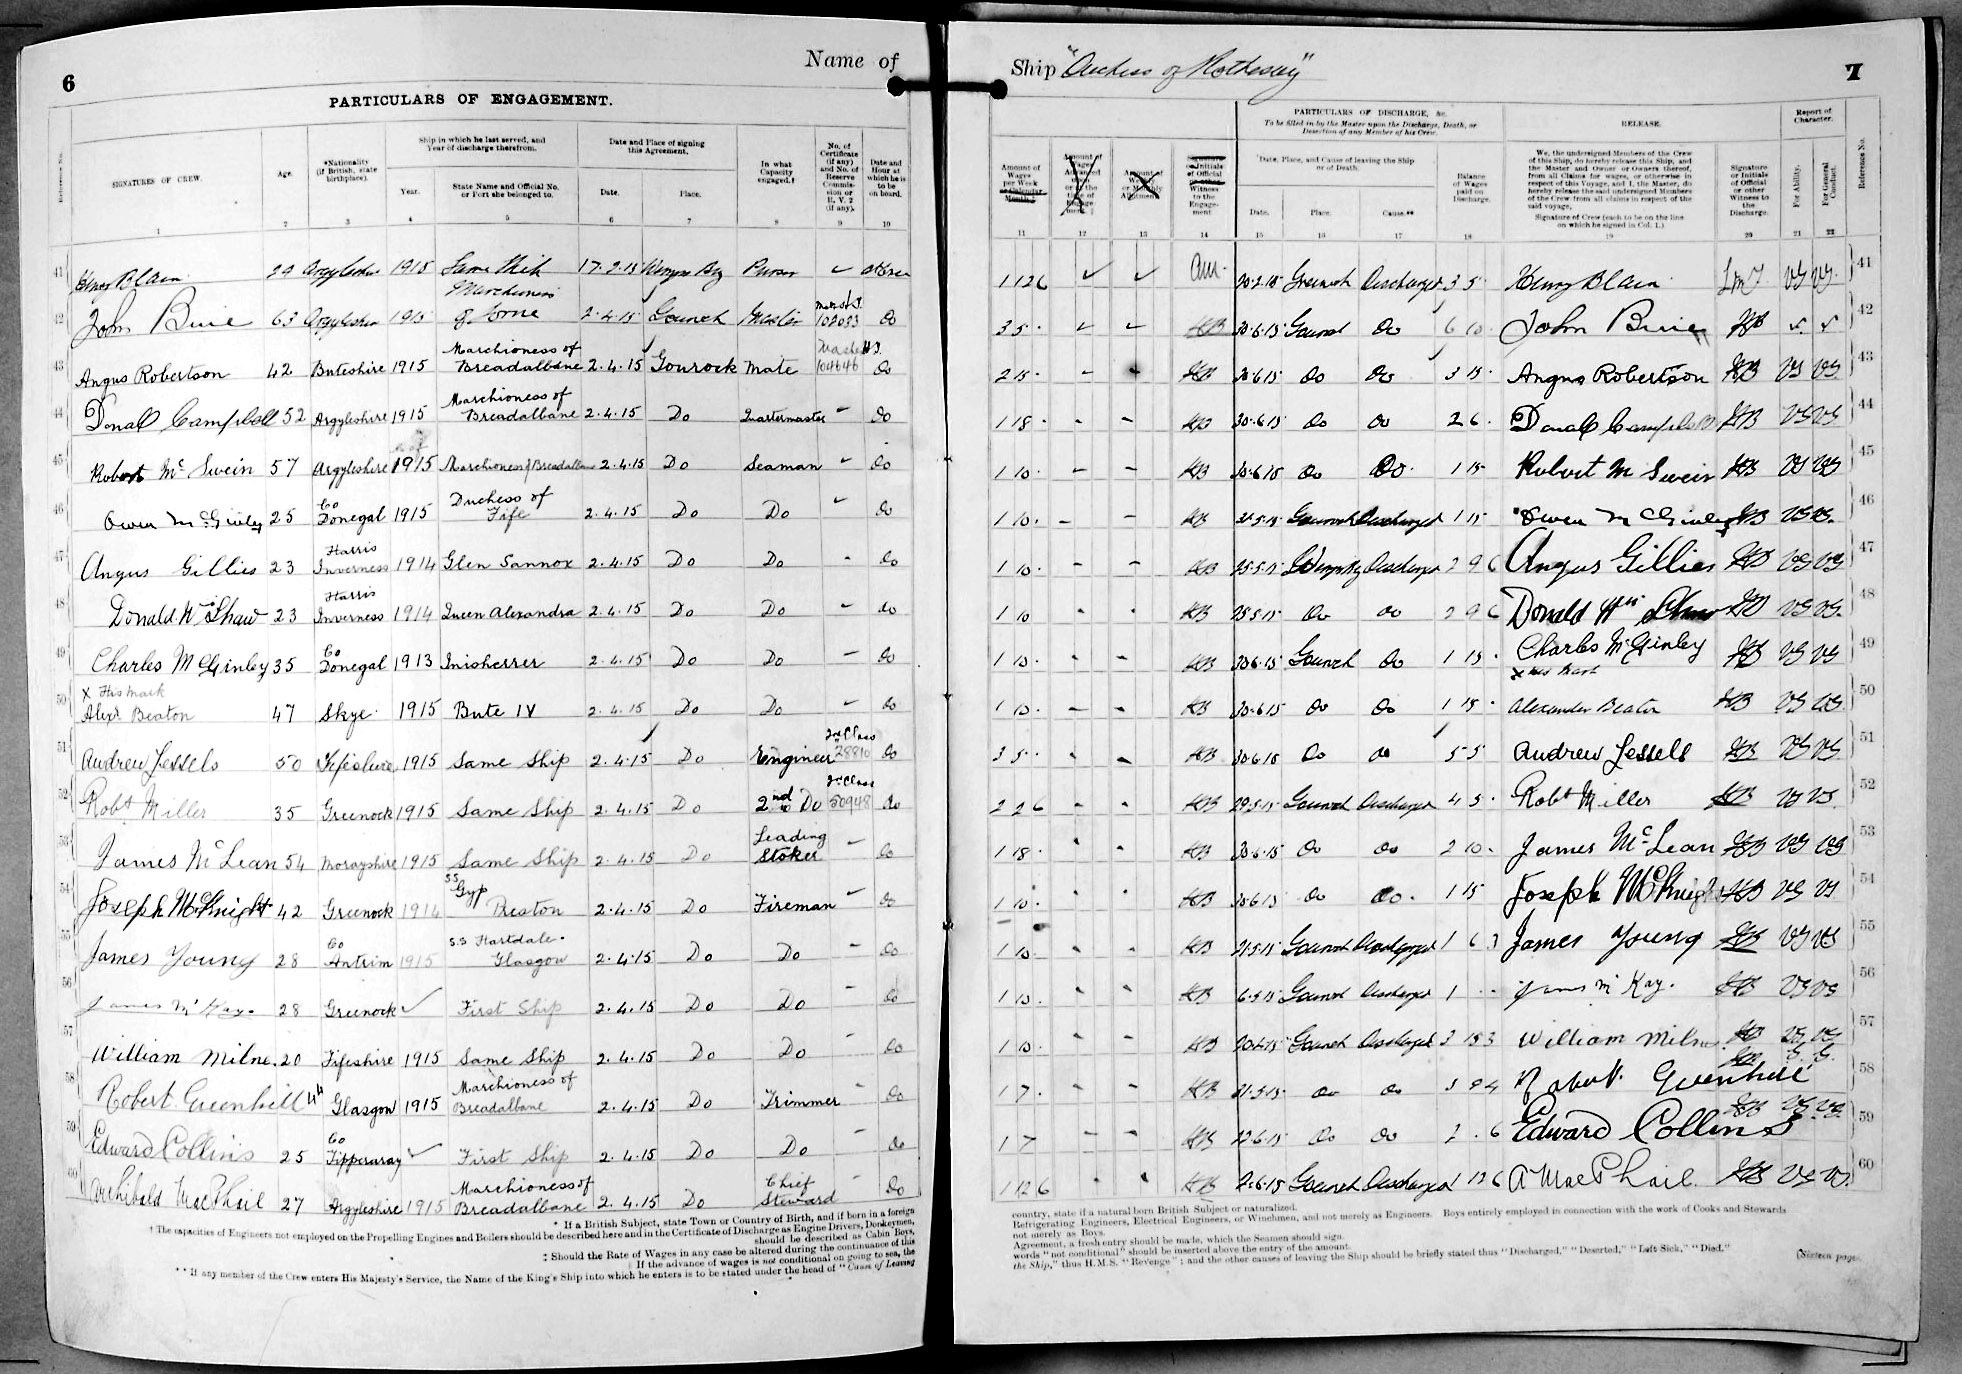 6
Name of
PARTICULARS OF ENGAGEMENT.
Reference No.
SIGNATURES OF CREW.
Age.
*Nationality (if British, state birthplace).
Ship in which he last served, and Year of discharge therefrom.
Year.
State Name and Official No. or Port she belonged to.
Date and Place of signing this Agreement.
Date.
Place.
In what Capacity engaged.†
No. of Certificate (if any) and No. of Reserve Commission or R. V. 2 (if any).
Date and Hour at which he is to be on board.
1 2 3 4 5 6 7 8 9 10
41 Henry Blain 29 Argyleshire 1915 Same Ship 17.2.15 Wemyss Bay Purser ✓
42 John Buie 63 Argyleshire 1915 Marchioness of Lorne 2.4.15 Gourock Master 102033 Do
43 Angus Robertson 42 Buteshire 1915 Marchioness of Breadalbane 2.4.15 Gourock Mate 104646 Do
44 Donald Campbell 52 Argyleshire 1915 Marchioness of Breadalbane 2.4.15 Do Quartermaster - Do
45 Robert Mc Swein 57 Argyleshire 1915 Marchioness of Breadalbane 2.4.15 Do Seaman - Do
46 Owen McGinley 25 Co Donegal 1915 Duchess of Fife 2.4.15 Do Do - Do
47 Angus Gillies 23 Harris Inverness 1914 Glen Sannox 2.4.15 Do Do - Do
48 Donald Wm Shaw 23 Harris Inverness 1914 Queen Alexandra 2.4.15 Do Do - Do
49 Charles McGinley 35 Co Donegal 1913 Inisherrer 2.4.15 Do Do - Do
50 X His mark Alexr Beaton 47 Skye 1915 Bute IV 2.4.15 Do Do - Do
51 Andrew Lessels 50 Fifeshire 1915 Same Ship 2.4.15 Do Engineer 2nd Class 28810 Do
52 Robt Miller 35 Greenock 1915 Same Ship 2.4.15 Do 2nd Do 2nd Class 50948 Do
53 James McLean 54 Morayshire 1915 Same Ship 2.4.15 Do Leading Stoker - Do
54 Joseph McKnight 42 Greenock 1914 SS Gyp Preston 2.4.15 Do Fireman - Do
55 James Young 28 Co Antrim 1915 S.S Hartdale. Glasgow 2.4.15 Do Do - Do
56 James McKay. 28 Greenock ✓ First Ship 2.4.15 Do Do - Do
57 William Milne. 20 Fifeshire 1915 Same Ship 2.4.15 Do Do - Do
58 Robert Greenhill 44 Glasgow 1915 Marchioness of Breadalbane 2.4.15 Do Trimmer - Do
59 Edward Collins 25 Co Tipperaray ✓ First Ship 2.4.15 Do Do - Do
60 Archibald MacPhail 27 Argyleshire 1915 Marchioness of Breadalbane 2.4.15 Do Chief Steward Do
* If a British Subject, state Town or Country of Birth, and if born in a foreign
† The capacities of Engineers not employed on the Propelling Engines and Boilers should be described here and in the Certificate of Discharge as Engine Drivers, Donkeymen,
should be described as Cabin Boys,
‡ Should the Rate of Wages in any case be altered during the continuance of this
If the advance of wages is not conditional on going to sea, the
** If any member of the Crew enters His Majesty's Service, the Name of the King's Ship into which he enters is to be stated under the head of "Cause of Leaving
Ship "Duchess of Rothesay"
7
Amount of Wages per Week or Calendar Month.
Amount of Wages Advanced on or at the time of Engagement.
Amount of Weekly or Monthly Allotment.
Initials of Official or other Witness to the Engagement
PARTICULARS OF DISCHARGE, &c.
To be filled in by the Master upon the Discharge, Death, or Desertion of any Member of his Crew.
Date, Place, and Cause of leaving the Ship or of Death.
Date.
Place.
Cause.**
Balance of Wages paid on Discharge.
RELEASE.
We, the undersigned Members of the Crew of this Ship, do hereby release this Ship, and the Master and Owner or Owners thereof, from all Claims for wages, or otherwise in respect of this Voyage, and I, the Master, do hereby release the said undersigned Members of the Crew from all claims in respect of the said voyage.
Signature of Crew (each to be on the line on which he signed in Col. 1.)
Signature or Initials of Official or other Witness to the Discharge.
Report of Character.
For Ability.
For General Conduct.
Reference No.
11 12 13 14 15 16 17 18 19 20 21 22
1 12 6 ✓ ✓ 20.2.15 Greenock Discharged 3 5 Henry Blain VG VG 41
3 5 - - - HB 30.6.15 Gourock Do 6 10 John Buie HB 42
2 15 - - HB 30.6.15 Do Do 3 15 Angus Robertson HB VG VG 43
1 18 - - - HB 30.6.15 Do Do 2 6 Donald Campbell HB VG VG 44
1 10 - - - HB 30.6.15 Do Do 1 15 Robert Mc Swein HB VG VG 45
1 10 - - HB Gourock Discharged 1 15 Owen McGinley HB VG VG 46
1 10 - - - HB 25.5.15 Wemyss Bay Discharged 2 9 6 Angus Gillies HB VG VG 47
1 10 - - HB 25.5.15 Do Do 2 9 6 Donald Wm Shaw HB VG VG 48
1 10 - - HB 30.6.15 Gourock Do 1 15 - Charles McGinley HB VG VG 49
1 10 - - - HB 30.6.15 Do Do 1 15 - X His Mark Alexander Beaton HB VG VG 50
3 5 - - - HB 30.6.15 Do Do 5 5 Andrew Lessels HB VG VG 51
2 2 6 - - HB 29.5.15 Gourock Discharged 4 5 - Robt Miller HB VG VG 52
1 18 - - - HB 30.6.15 Do Do 2 10 - James McLean HB VG VG 53
1 10 - - - HB 30.6.15 Do Do 1 15 Joseph McKnight HB VG VG 54
1 10 - - HB 21.5.15 Gourock Discharged 1 6 3 James Young HB VG VG 55
1 10 - - HB 6.5.15 Gourock Discharged 1 - - James McKay. HB VG VG 56
1 10 - - - HB Gourock Discharged 3 15 3 William Milne HB VG VG 57
1 7 - - - HB 21.5.15 Do Do Robert Greenhill HB G. G. 58
1 7 - - HB 12.6.15 Do Do 2 . 6 Edward Collins HB VG VG 59
1 12 6 - - HB 2.6.15 Gourock Discharged 1 12 6 A MacPhail. HB VG VG 60
country, state if a natural born British Subject or naturalized.
Refrigerating Engineers, Electrical Engineers, or Winchmen, and not merely as Engineers. Boys entirely employed in connection with the work of Cooks and Stewards
not merely as Boys.
Agreement, a fresh entry should be made, which the Seamen should sign.
words "not conditional" should be inserted above the entry of the amount.
the Ship," thus H.M.S. "Revenge"; and the other causes of leaving the Ship should be briefly stated thus "Discharged," "Deserted," "Left Sick," "Died."
(Sixteen page